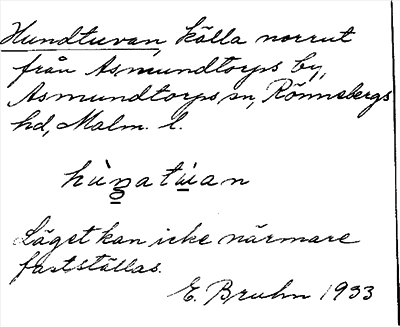 Hundtuvan, källa norrut
från Asmundtorps by,
Asmundtorps sn, Rönnebergs
hd, Malm. l.
Läget kan icke närmare
fastställas.
E. Bruhn 1933